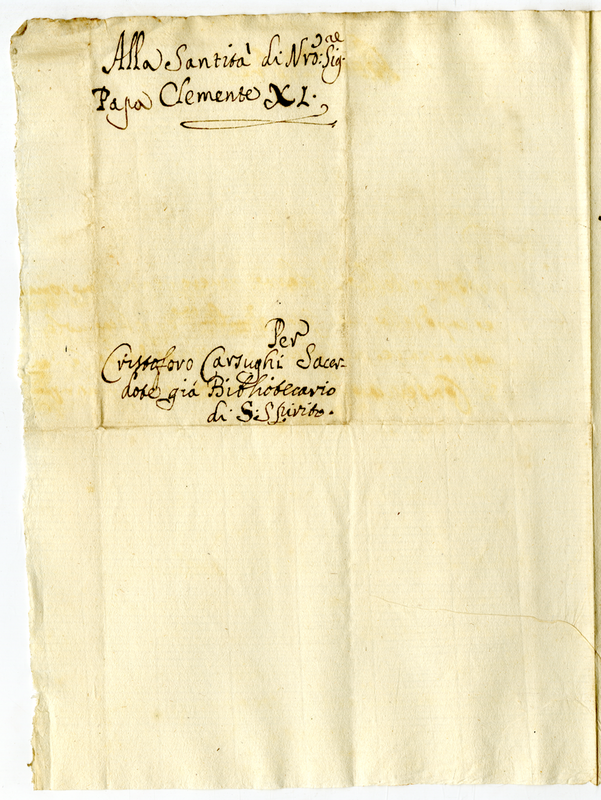 Alla Santità di Nro: Sig.re
Papa Clemente XI.
Per
Cristoforo Carsughi Sacer-
dote già Bibliotecario
di S: Spirito.